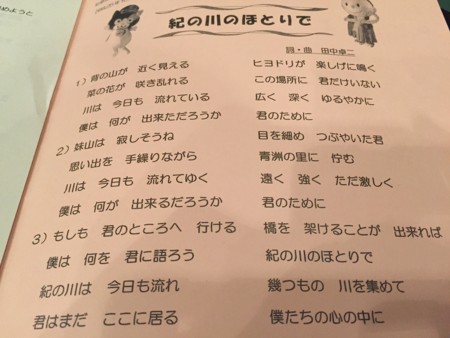 めようと
紀の川のほとりで
詞・曲 田中卓二
1）背の山が 近く見える ヒヨドリが 楽しげに鳴く
菜の花が 咲き乱れる この場所に 君だけいない
川は 今日も 流れている 広く 深く ゆるやかに
僕は 何が 出来ただろうか 君のために
2）妹山は 寂しそうね 目を細め つぶやいた君
思い出を 手繰りながら 青洲の里に 佇む
川は 今日も 流れてゆく 遠く 強く ただ激しく
僕は 何が 出来るだろうか 君のために
3）もしも 君のところへ 行ける 橋を 架けることが 出来れば
僕は 何を 君に語ろう 紀の川のほとりで
紀の川は 今日も流れ 幾つもの 川を集めて
君はまだ ここに居る 僕たちの心の中に